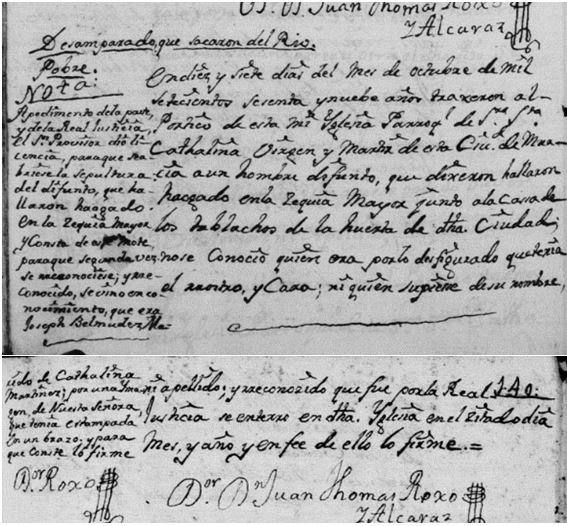 Dr. Dn. Juan Thomas Roxo
y Alcaraz
Desamparado, que sacaron del Rio.
Pobre.
Nota.
Apedimento dela parte,
y dela Real Justicia,
El Sr. Provisor dió li-
cencia, paraque sea-
briese la sepultura
del difunto, que ha-
llaron haogado
en la Zequia Mayor
y Consta de
paraque segunda vez
se rreconociese; y rre-
conocido, sevino en co-
nocimiento, que era
Joseph Belmudez Ma-
Endiez, y siete dias del Mes de octubre de mil
setecientos sesenta, y nuebe años traxeron al
Portico de esta Igleſia Parroql. de Sta.
Cathalina Virgen, y Martir de esta Ciud. de Mur-
cia aun hombre difunto, que dixeron hallaron
haogado enla Zequia Mayor junto ala Casa de
los tablachos de la huerta de dha. Ciudad;
nose Conoció quien era porlo desfigurado quetenia
el rrostro, y Cara; ni quien supiese desu nombre,
rido de Cathalina
Martinez; por una Ima-
gen de Nuestra Señora,
quetenia estampada
en un brazo. y para
que Conste lo firmé
Dor. Roxo
ni apellido; y rreconozido que fue porla Real 140.
Justicia se enterro en dha. Yglesia en el zitado dia
Mes, y año y en fee de ello lo firme.=
Dor. Dn. Juan Thomas Roxo
y Alcaraz